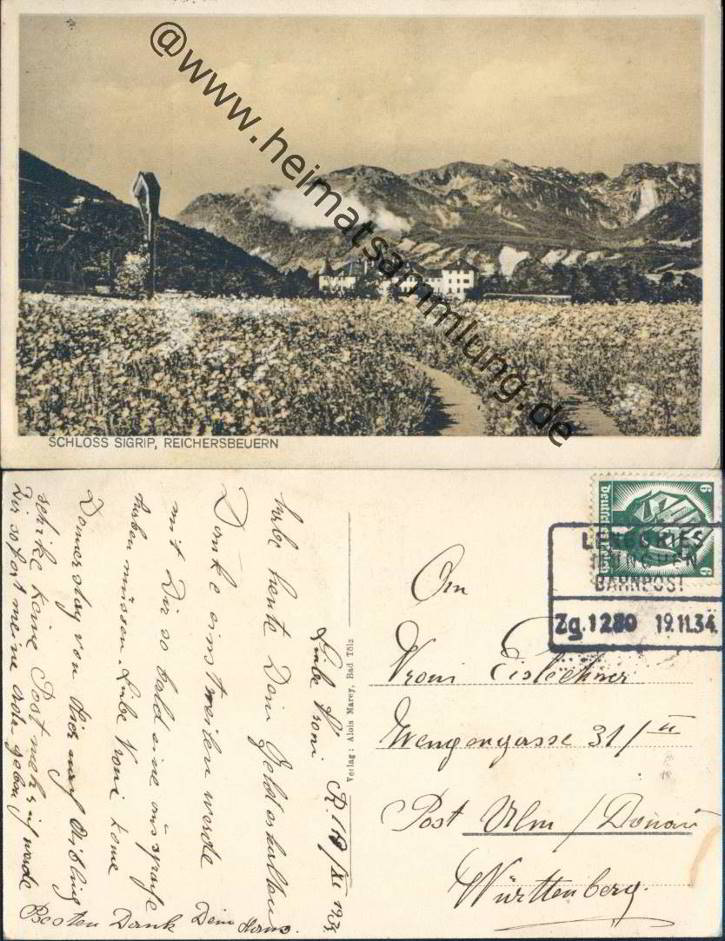 @www.heimatsammlung.de
SCHLOSS SIGRIP, REICHERSBEUERN
6 Deutsches 6
LENGGRIES
MÜNCHEN
BAHNPOST
Zg. 1280 19.11.34
An
Vroni
Wengengasse 31/II
Post Ulm/Donau
Württemberg.
Verlag: Alois Marey, Bad Tölz
R. 19/XI 1934
Liebe Vroni
habe heute Dein Geld erhalten
Danke einstweilen werde
mit Dir so bald eine
haben müssen. Liebe Vroni komme
Donnerstag von hier nach Aibling
schicke keine Post mehr, ich werde
Dir sofort meine geben
Besten Dank Dein Hans.